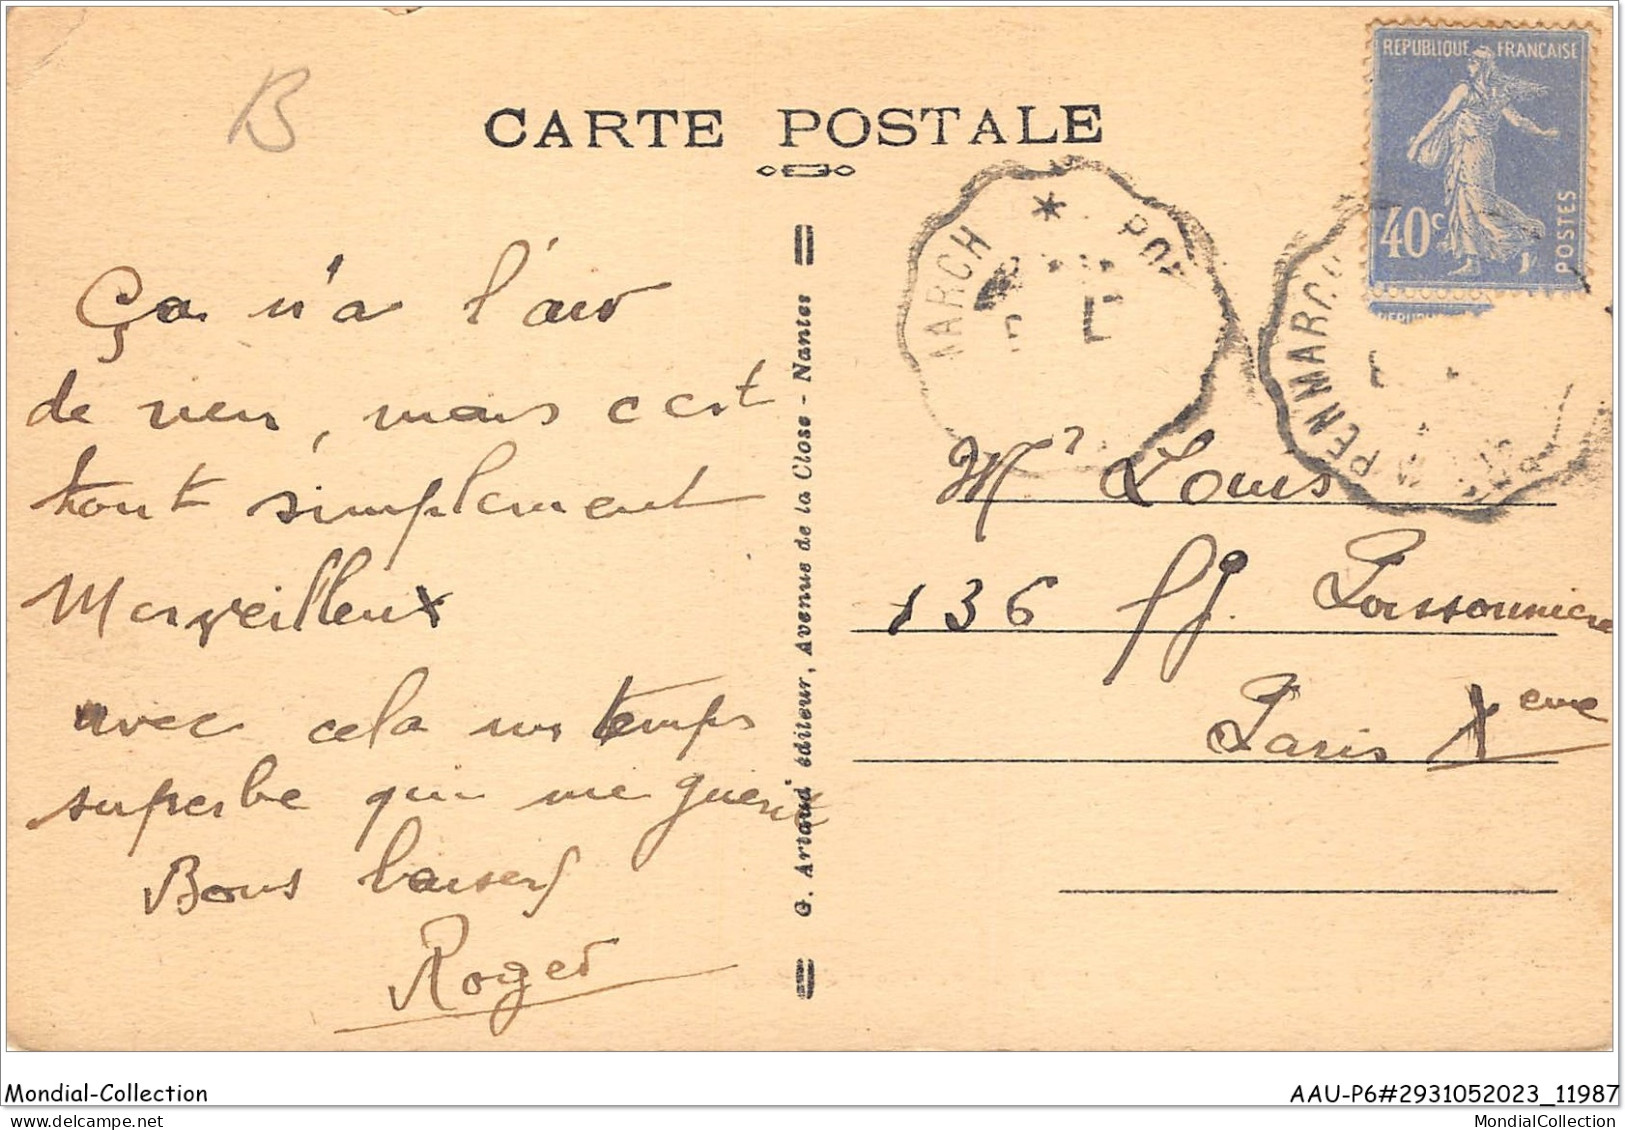 B
CARTE POSTALE
REPUBLIQUE FRANÇAISE
40c
POSTES
AARCH * PO
PENMARC
Ça n'a l'air
de rien, mais c'est
tout simplement
Merveilleux
avec cela un temps
superbe qui me guérit
Bons baisers
Roger
G. Artaud éditeur, Avenue de la Close - Nantes
Mr Louis
136 fg. Poissonniere
Paris Xeme
Mondial-Collection
AAU-P6#2931052023_11987
MondialCollection